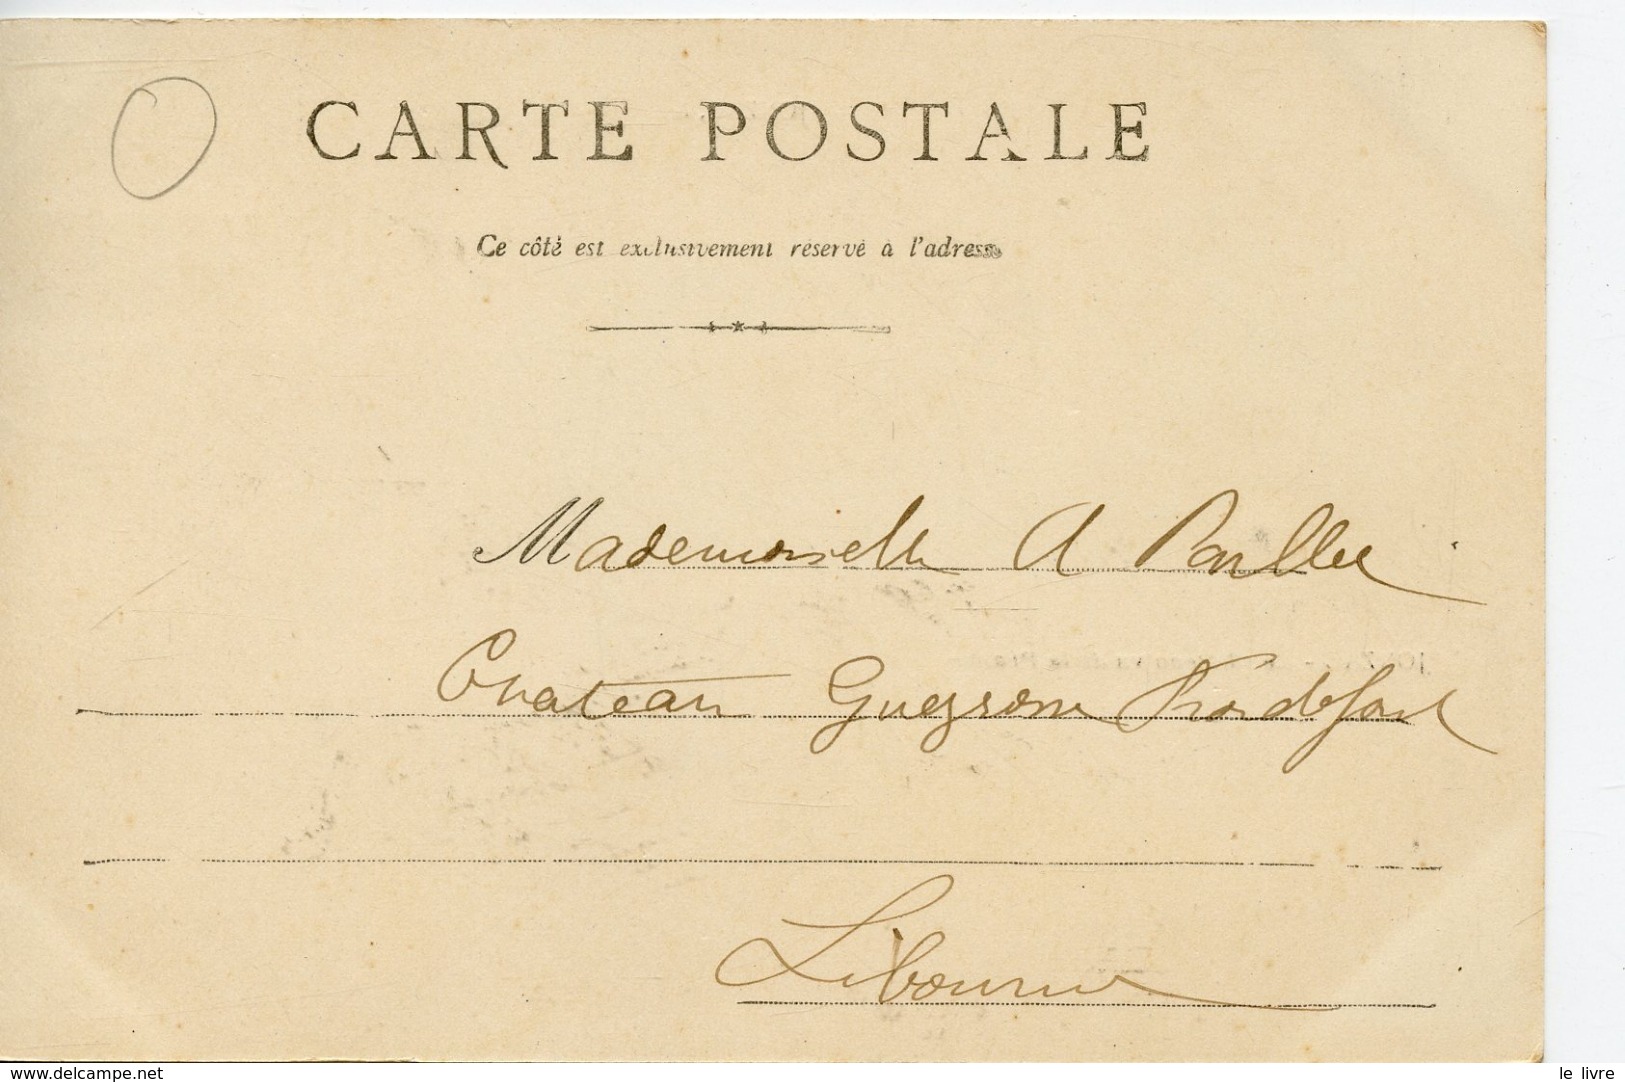 CARTE POSTALE
Ce côté est exclusivement réservé à l'adresse
Mademoiselle A
Chateau Gueyrosse
Libourne
www.delcampe.net
le livre